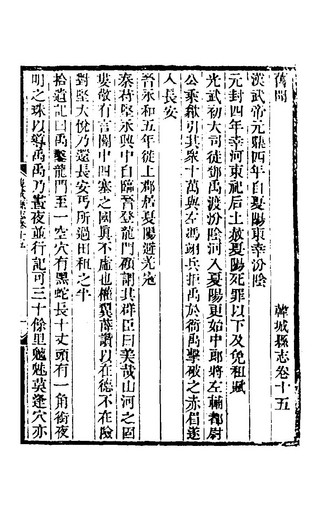 韓城縣志卷十五
舊聞
漢武帝元鼎四年自夏陽東幸汾陰
元封四年幸河東祀后土赦夏陽死罪以下及免租賦
光武初大司徒鄧禹渡汾陰河入夏陽更始中郎將左輔都尉
公乘歙引其衆十萬與左馮翊兵拒禹於衙禹擊破之赤眉遂
入長安
晉永和五年徙上郡於夏陽避羌寇
秦苻堅永興中自臨晉登龍門顧謂其群臣曰美哉山河之固
婁敬有言關中四塞之國眞不虛也權翼薛讚以在德不在險
對堅大悅乃還長安丐所過田租之半
拾遺記曰禹鑿龍門至一空穴有黑蛇長十丈頭有一角銜夜
明之珠以導禹禹乃晝夜並行記可三十餘里魑魅莫逢穴亦